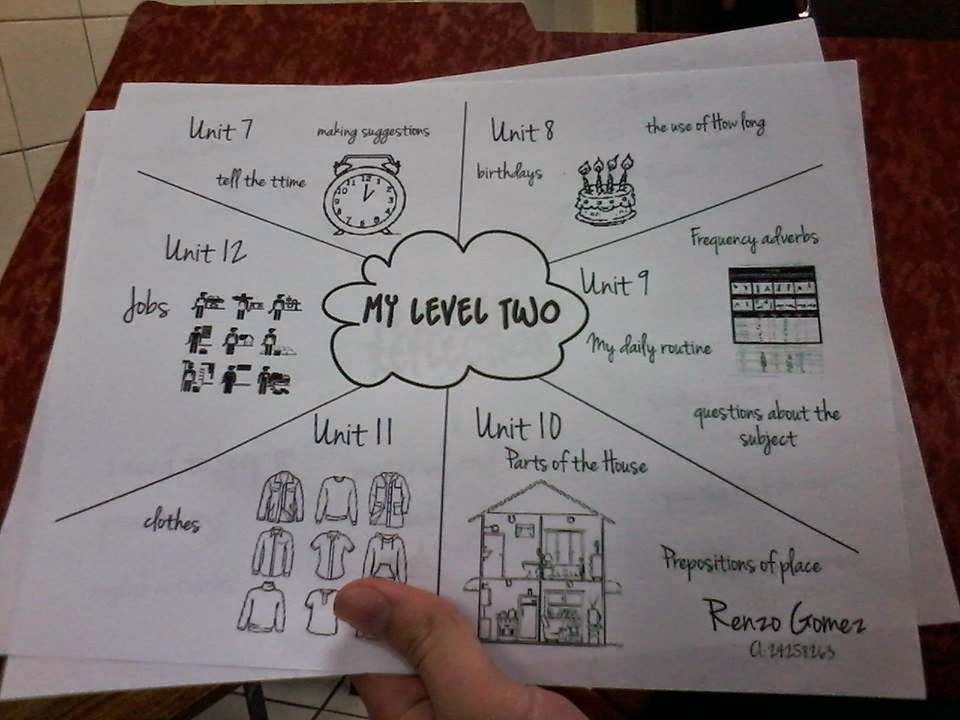 Unit 7
making suggestions
tell the ttime
Unit 8
the use of How long
birthdays
Unit 12
Jobs
MY LEVEL TWO
Frequency adverbs
Unit 9
My daily routine
questions about the
subject
Unit 11
clothes
Unit 10
Parts of the House
Prepositions of place
Renzo Gomez